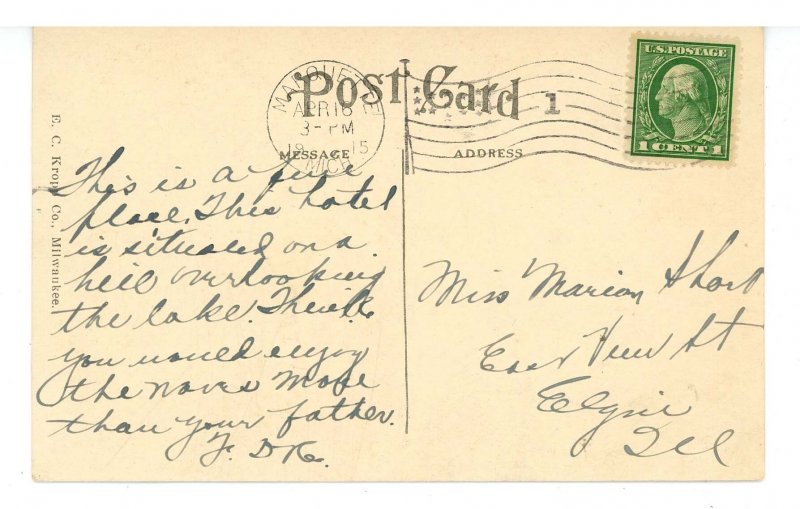 Post Card
MARQUETTE
APR 16
3-PM
1915
MICH
1
U.S. POSTAGE
1 CENT 1
MESSAGE
ADDRESS
E. C. Kropp Co., Milwaukee.
This is a fine
place. This hotel
is situated on a
hill overlooking
the lake. Think
you would enjoy
the waves more
than your father.
Miss Marion Short
East View St
Elgin
Ill